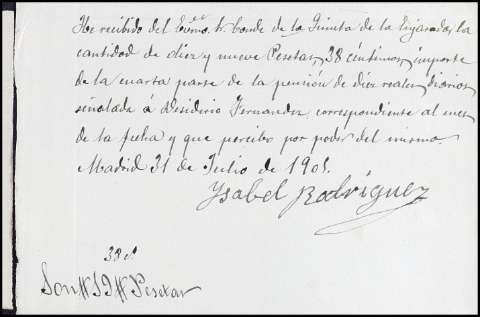 He recibido del Exmo. Sr. Conde de la Quinta de la Enjarada, la
cantidad de diez y nueve Pesetas, 38 céntimos, importe
de la cuarta parte de la pensión de diez reales diarios
señalada á Desiderio Fernandez correspondiente al mes
de la fecha y que percibo por poder del mismo.
Madrid 31 de Julio de 1901.
Ysabel Rodríguez
38 cs
Son # 19 # Pesetas